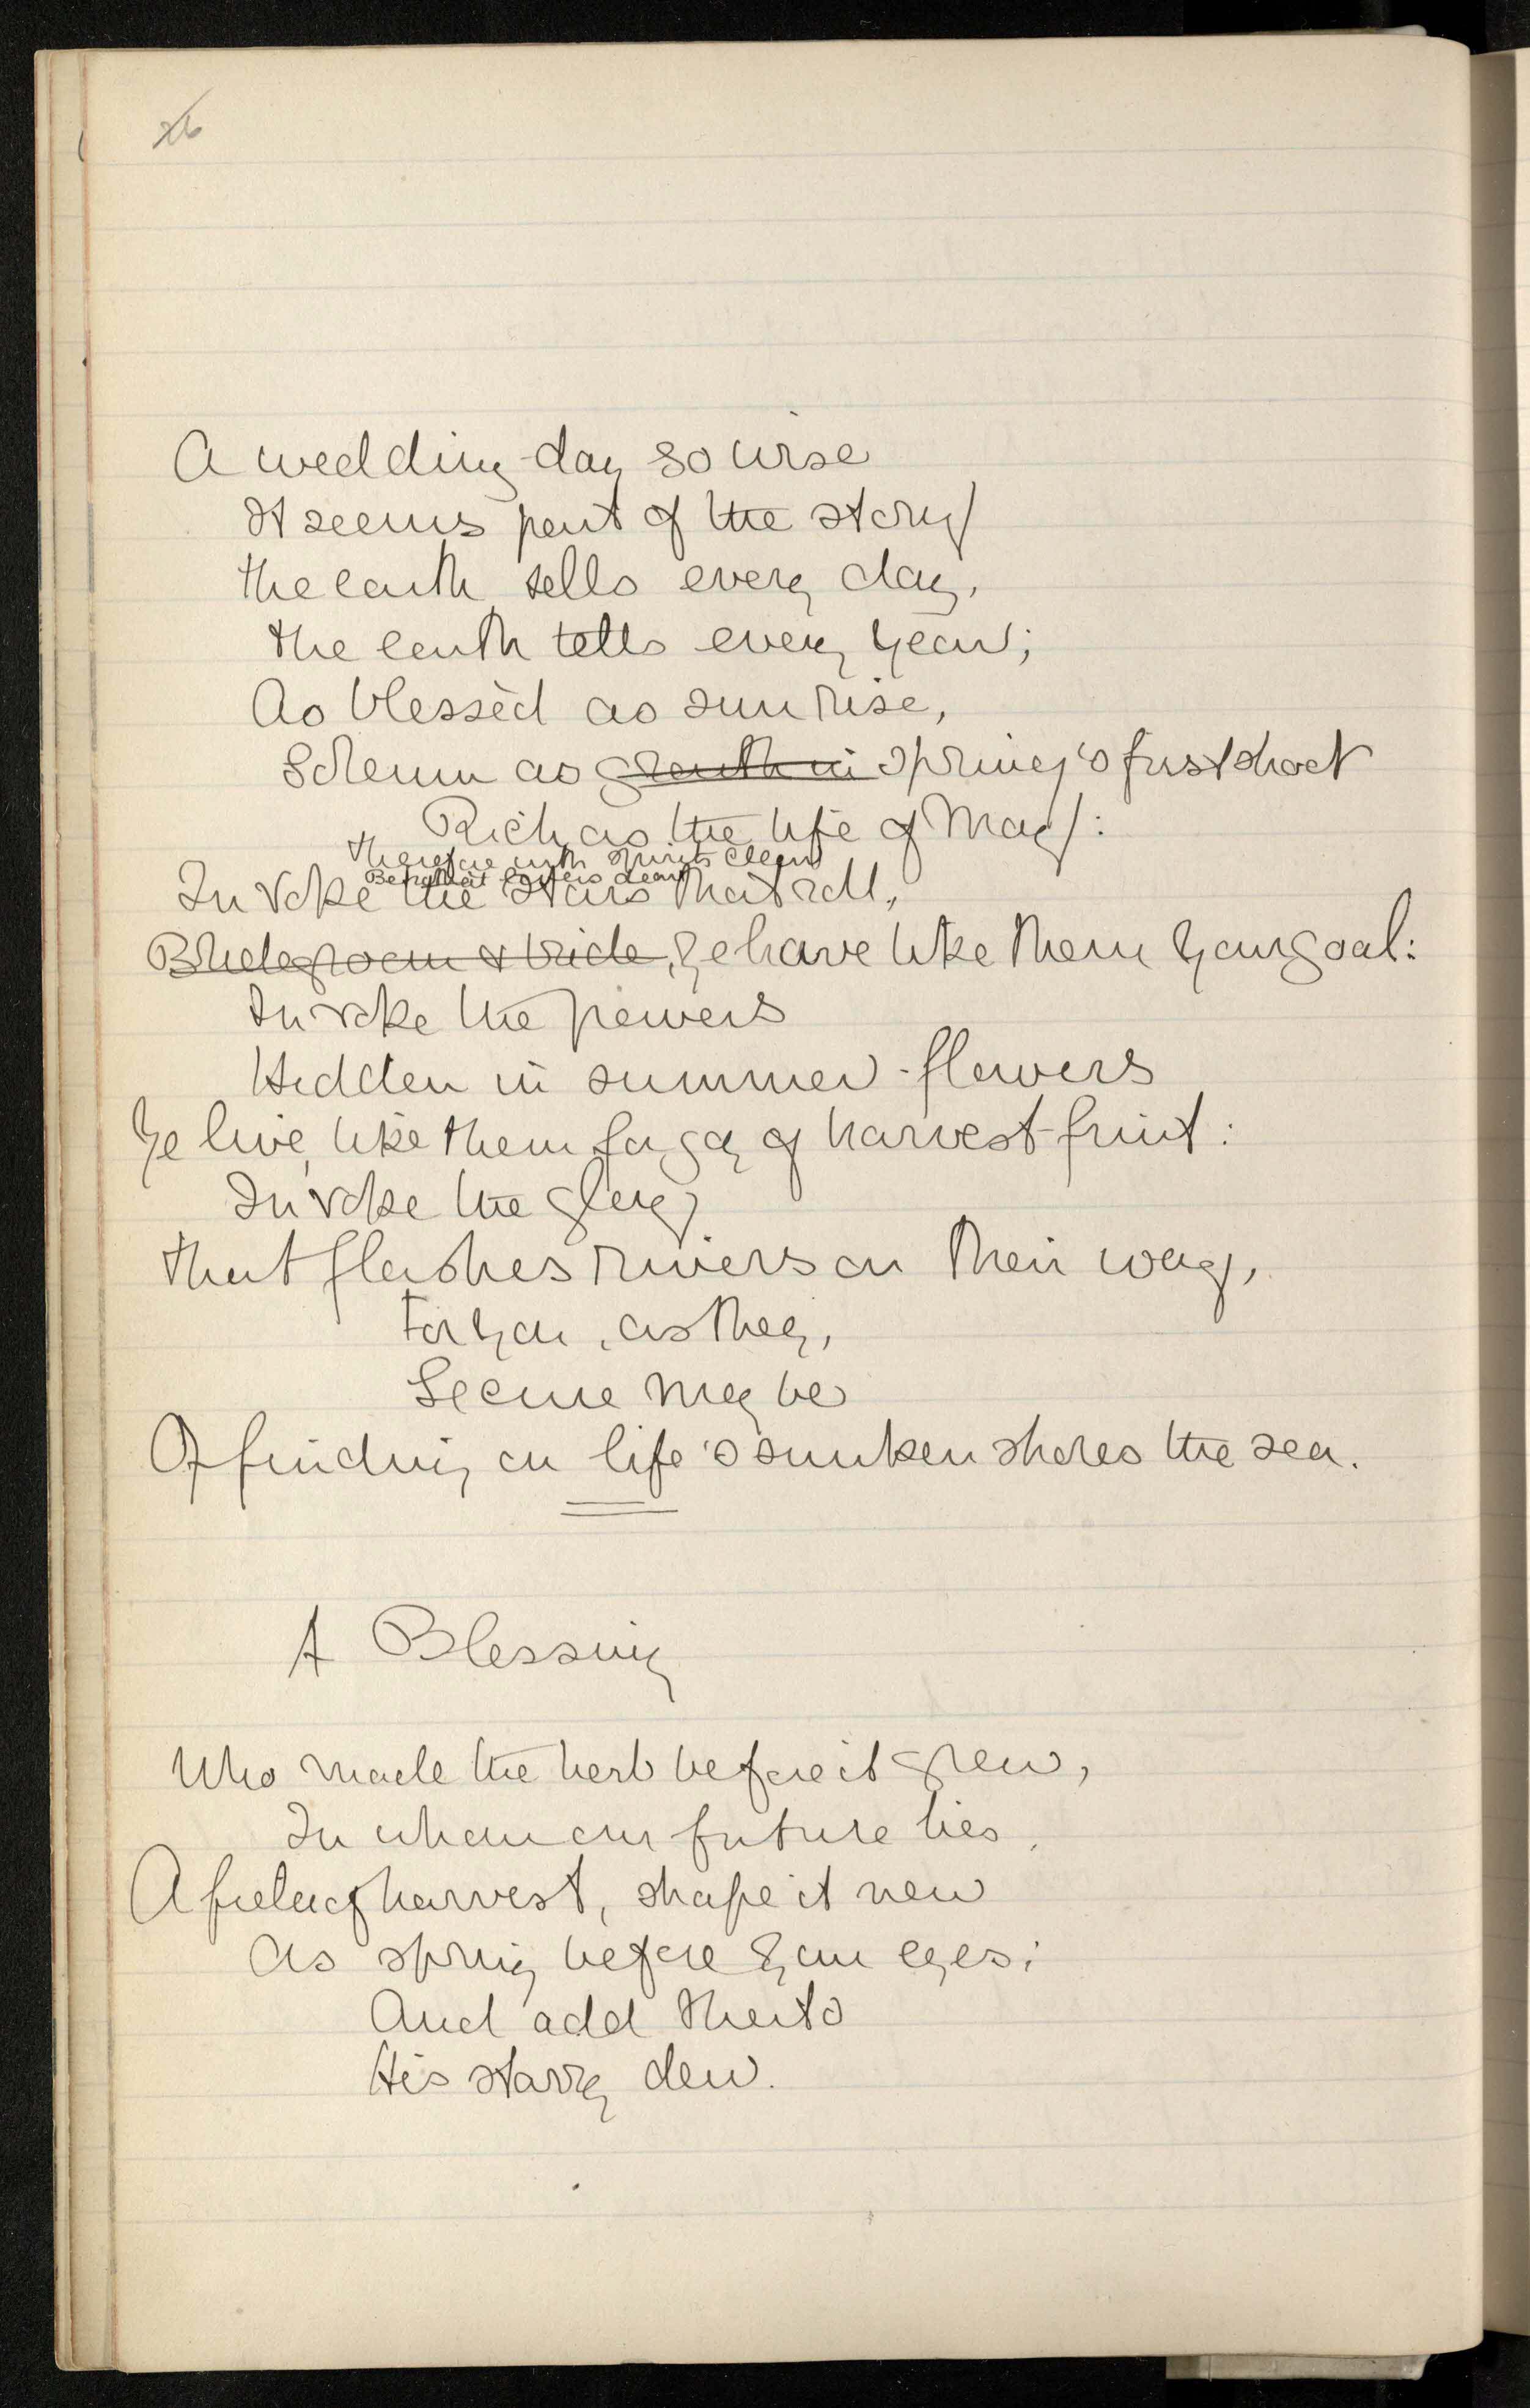 26
A wedding-day so wise
It seems part of the story
the earth tells every day,
the earth tells every year;
As blessèd as sunrise,
Solemn as growth in spring's first shoot
Rich as the life of May:
therefore with spirits clear
lovers dear
Invoke the stars that roll,
Bridegroom & bride, ye have like them your goal:
Invoke the powers
Hidden in summer-flowers
Ye live, like them for joy of harvest-fruit:
Invoke the glory
that flashes rivers on their way,
For you, as they,
Secure may be
Of finding on life's sunken shores the sea.
A Blessing
Who made the herb before it grew,
In whom our future lies,
A field of harvest, shape it new
As spring before your eyes:
And add thereto
His starry dew.